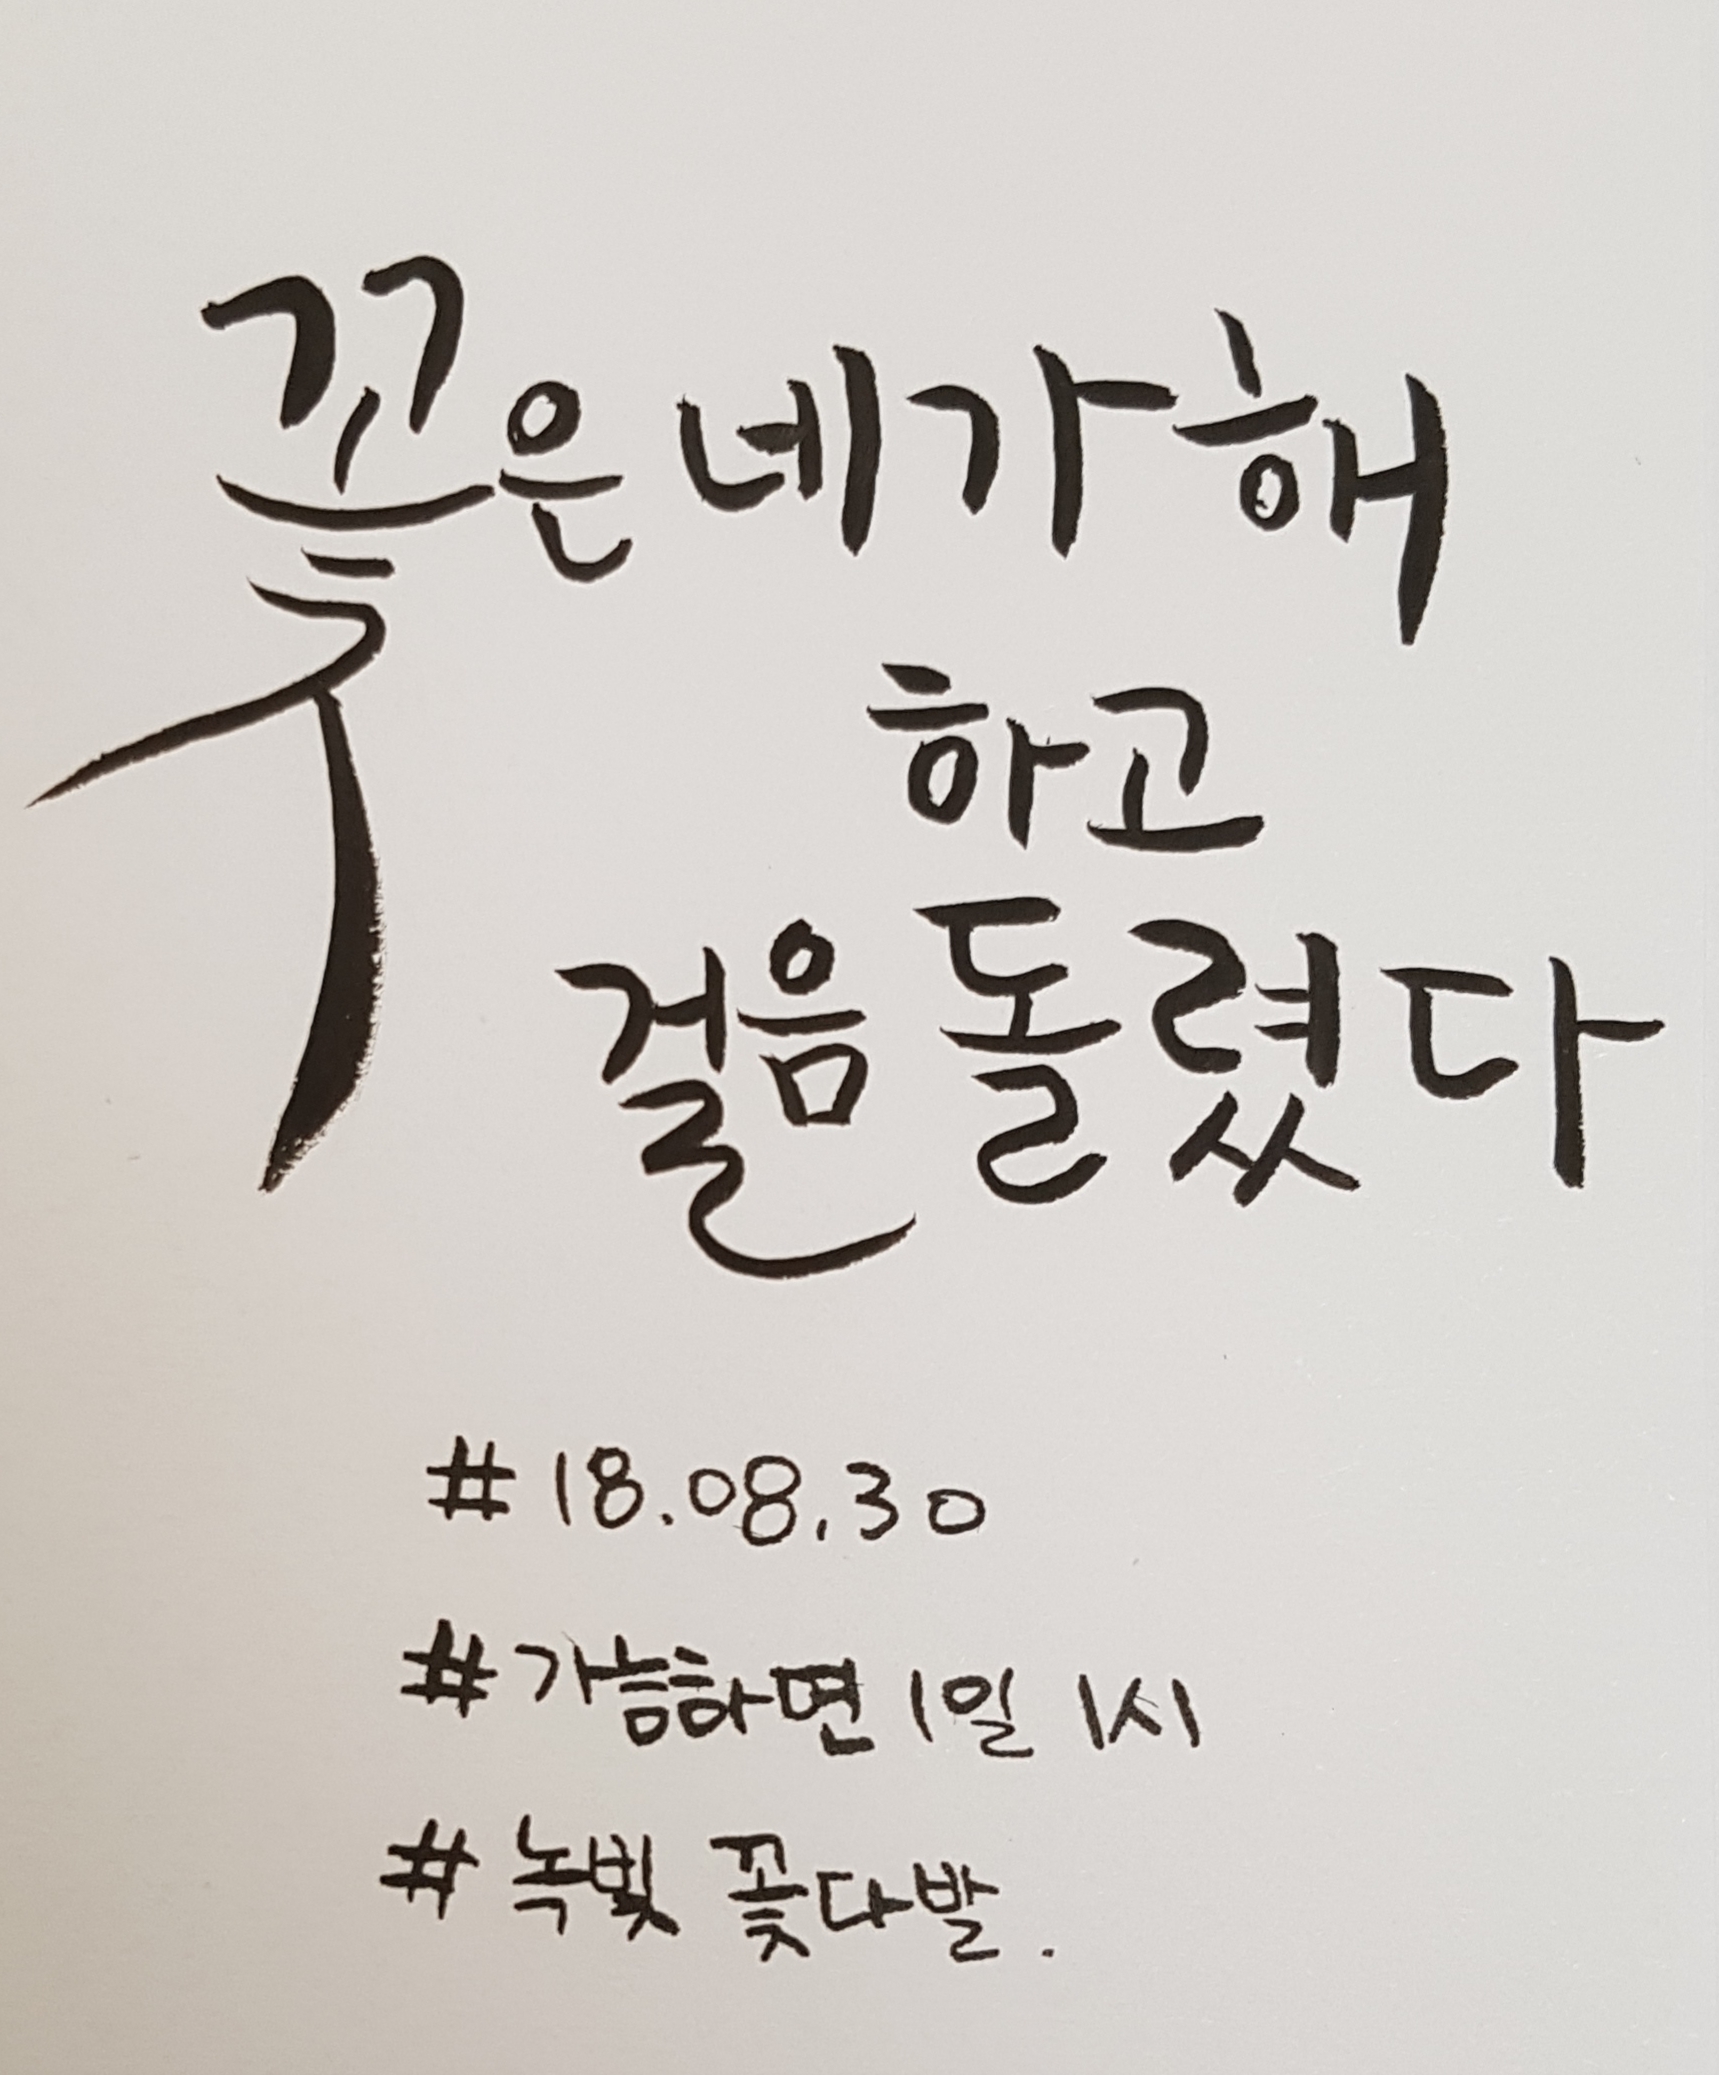 꽃은 네가 해
하고
걸음 돌렸다
#18.08.30
#가능하면 1일 1시
#녹빛 꽃다발.